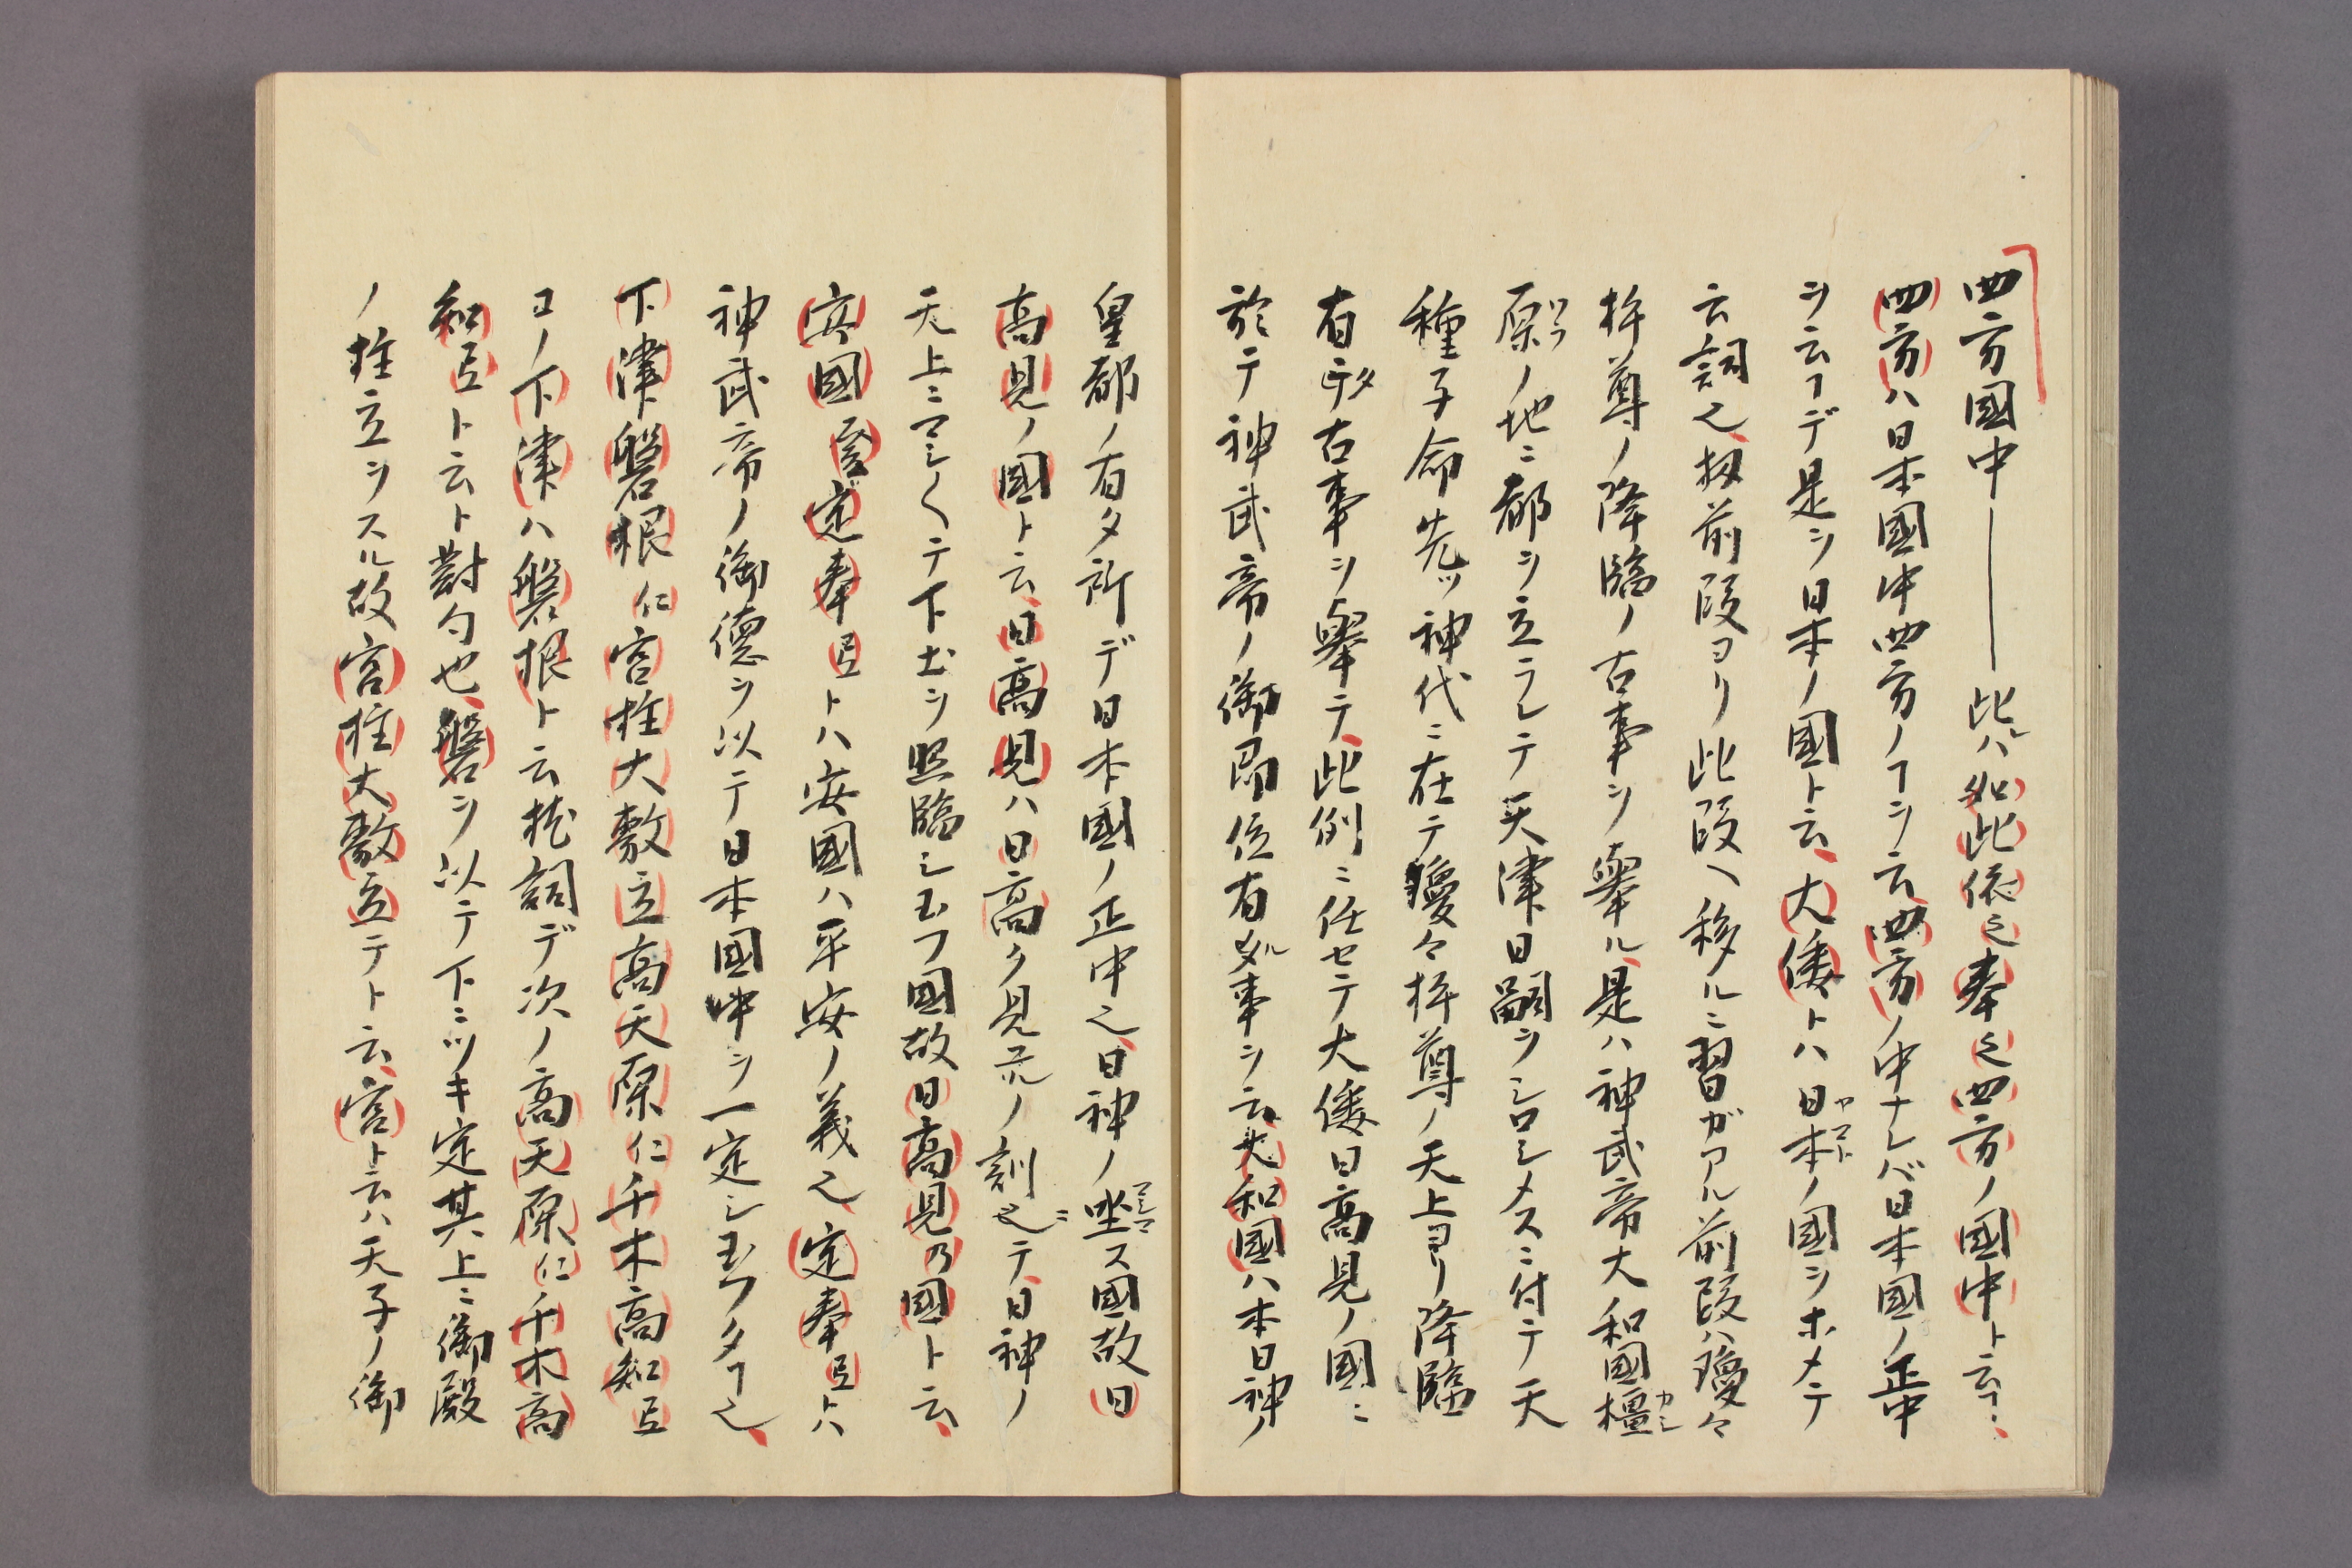 四方國中――此レハ如此依之奉之四方ノ國中ト云ヿニ
四方ハ日本國中四方ノヿヲ云四方ノ中ナレバ日本國ノ正中
ヲ云ヿデ是ヲ日本ノ國ト云大倭トハ日本ノ國ヲホメテ
云詞也扨前段ヨリ此段ヘ移ルニ習ガアル前段ハ瓊々
杵尊ノ降臨ノ古事ヲ舉ル是ハ神武帝大和國橿
原ノ地ニ都ヲ立ラレテ天津日嗣ヲシロシメスニ付テ天
種子命先ッ神代ニ在テ瓊々杵尊ノ天上ヨリ降臨
有タ古事ヲ舉テ此例ニ任セテ大倭日高見ノ國ニ
於テ神武帝ノ御即位有ル事ヲ云大和國ハ本日神ノ
皇都ノ有タ所デ日本國ノ正中也日神ノ坐ス國故日
高見ノ國ト云日高見ハ日高ク見ルノ訓ニテ日神ノ
天上ニマシ〱テ下土ヲ照臨シ玉フ國故日高見乃國ト云
安國登定奉弖トハ安國ハ平安ノ義也定奉弖トハ
神武帝ノ御德ヲ以テ日本國中ヲ一定シ玉フタヿ也
下津磐根仁宮柱大敷立高天原仁千木高知弖
コノ下津ハ磐根ト云枕詞デ次ノ高天原仁千木高
知弖ト云ト對句也磐ヲ以テ下ニツキ定其上ニ御殿
ノ柱立ヲスル故宮柱大敷立テト云宮ト云ハ天子ノ御